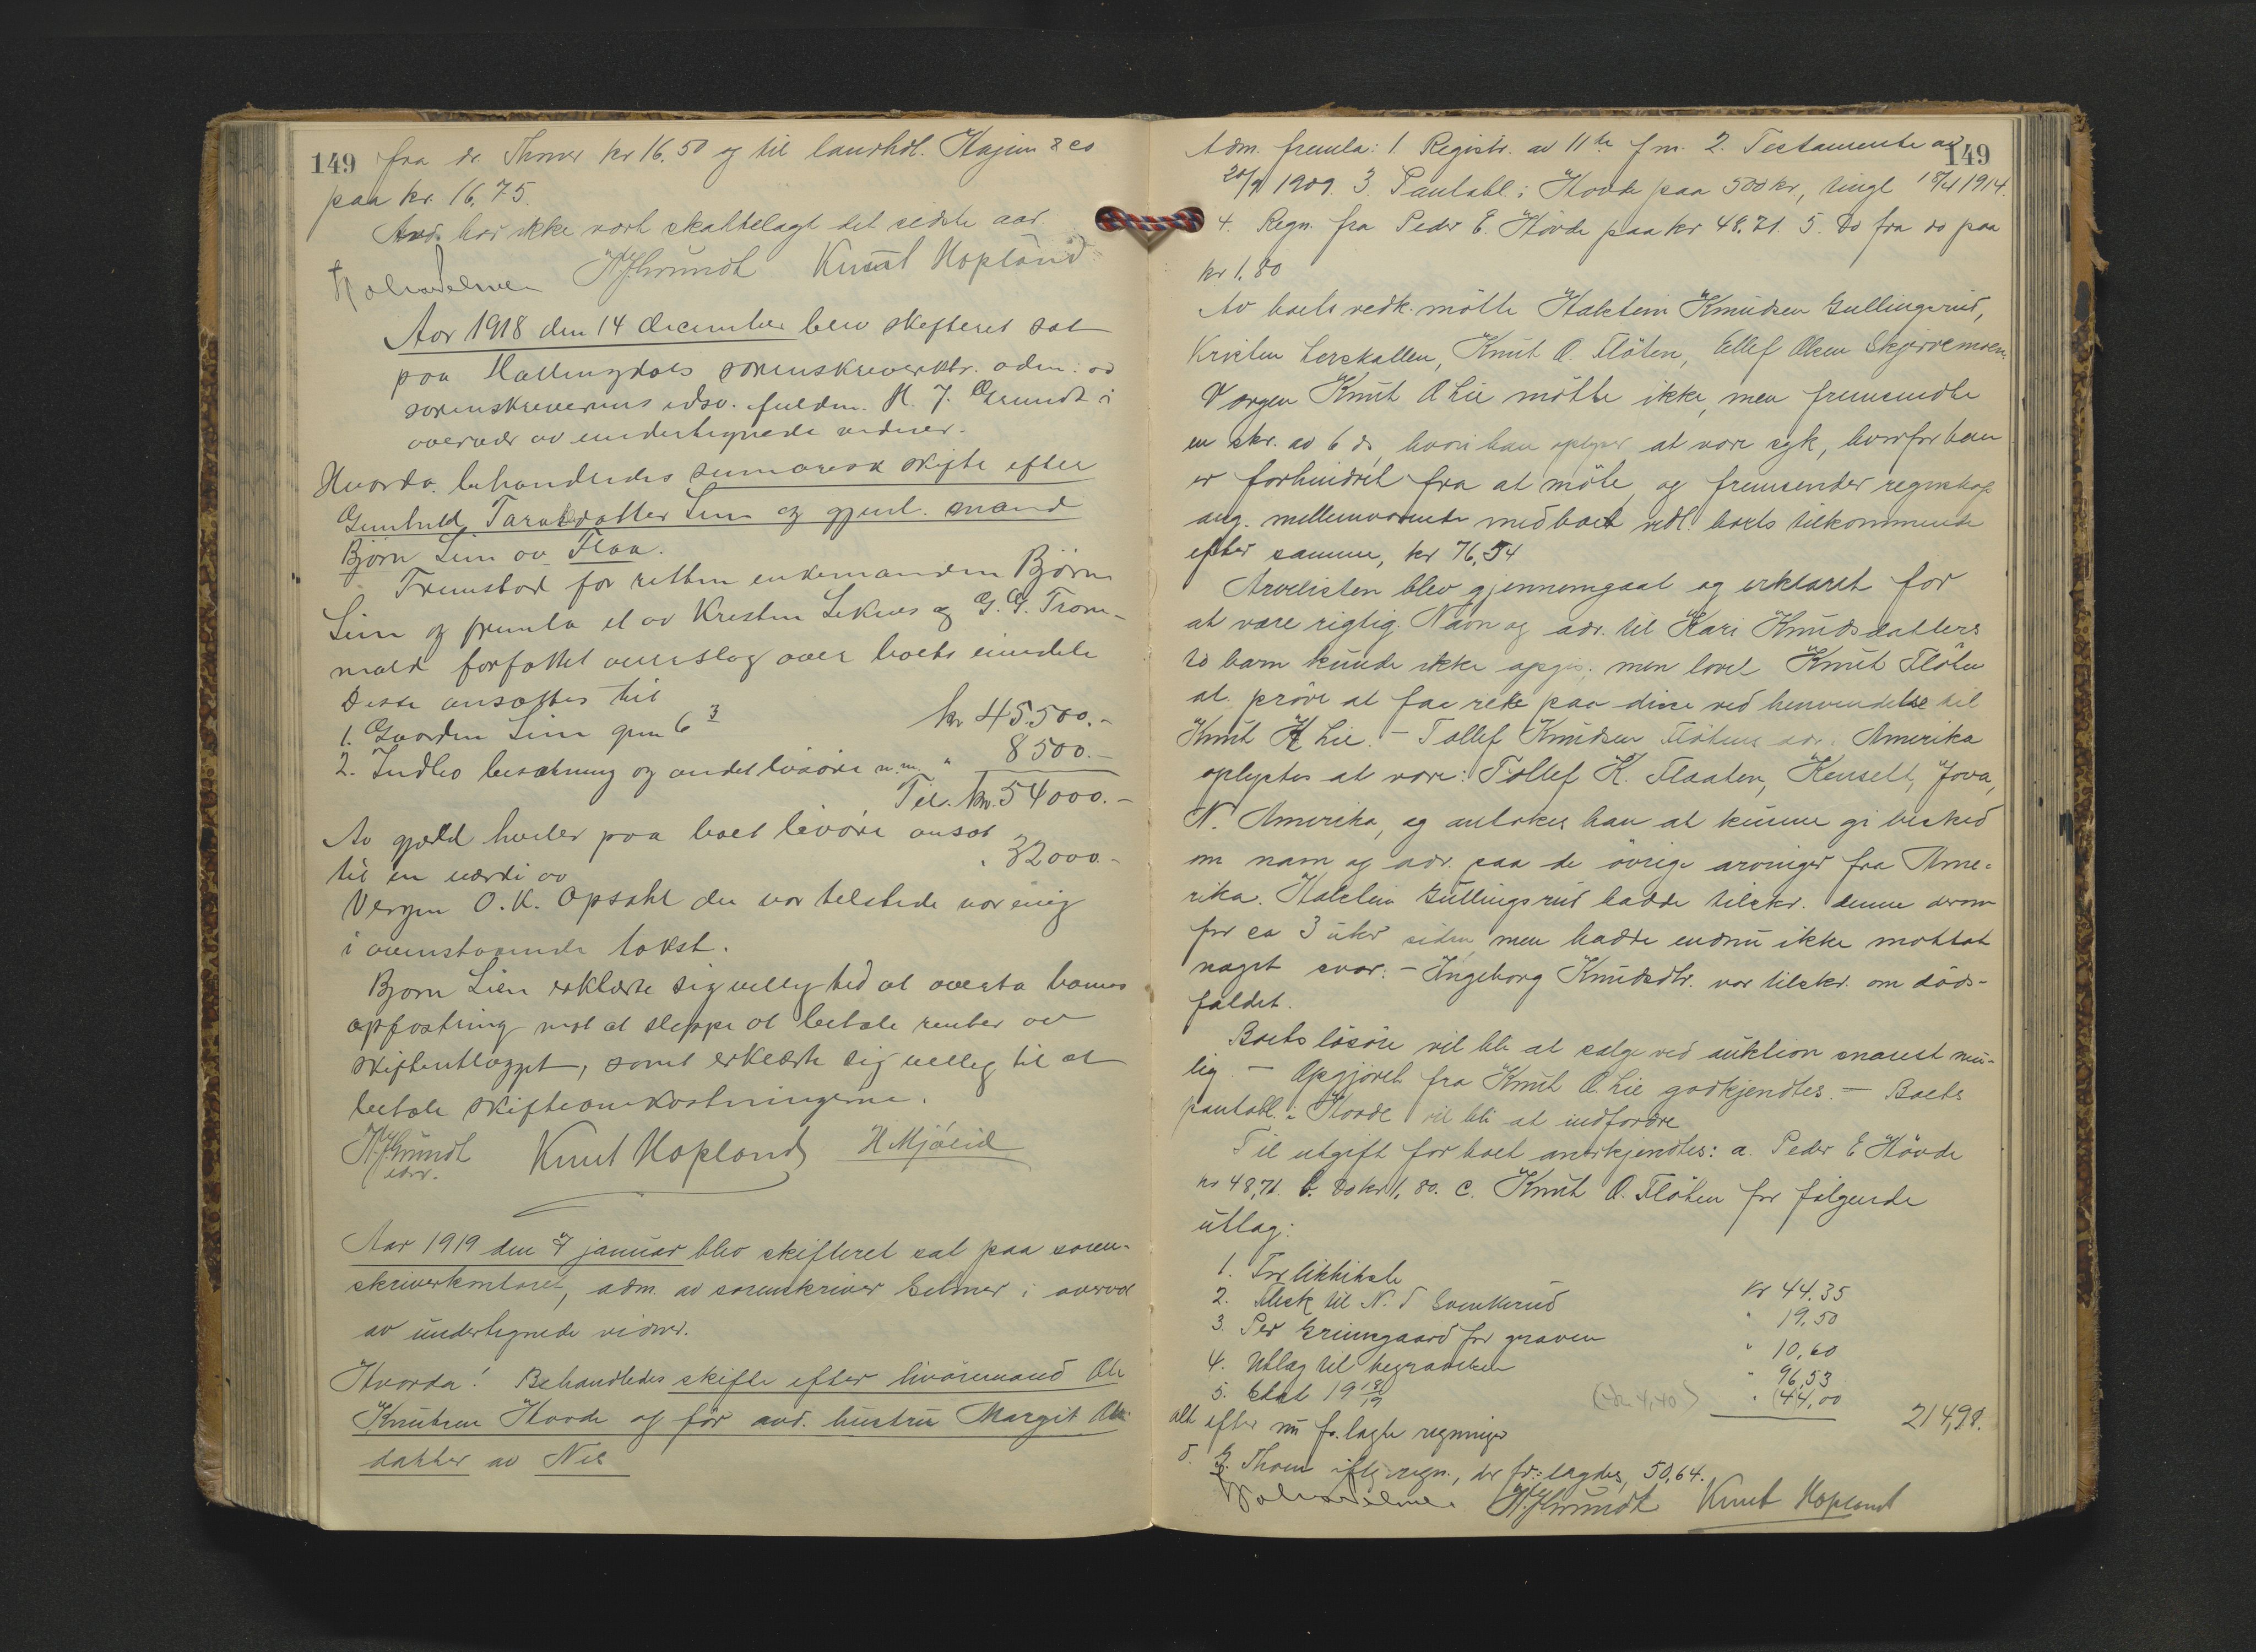 149 fra dr. Thoner kr 16.50 og til landhdl. Hajem & co
paa kr. 16,75.
Avd. har ikke vært skattelagt det sidste aar.
H J Grundt Knut Hopland
Aar 1918 den 14 december blev skifteret sat
paa Hallingdals sorenskriverktr. adm: av
sorenskriverens edsv. fuldm. H. J. Grundt i
overvær av undertegnede vidner.
Hvorda. behandledes summarisk skifte efter
Gunhild Taraldsdatter Lien og gjenl. mand
Bjørn Lien av Flaa.
Fremstod for retten enkemanden Bjørn
Lien og fremla et av Kristen Leknes og G. G. Trom-
mald forfattet overslag over boets eiendele
Disse ansattes til
1. Gaarden Lien gnr 6 3 kr 45.500.-
2. Indbo besætning og andet løsøre m.m. " 8500.-
Til. kr. 54000.-
Av gjæld hviler paa boet livøre ansat
til en værdi av " 32000.-
Vergen O. K. Opsahl der var tilstede var enig
i ovenstaaende takst.
Bjørn Lien erklærte sig villig ted at overta barnes
opfostring mot at sleppe at betale renter av
skifteutlægget, samt erklærte sig villig til at
betale skifteomkostningerne.
H J Grundt Knut Hopland H Mjøeid
edsv.
Aar 1919 den 7 januar blev skifteret sat paa soren-
skriverkontoret, adm. av sorenskriver Selmer i overvær
av undertegnede vidner.
Hvorda! Behandledes skifte efter livøremand Ole
Knutsen Hovde og før avd. hustru Margit Ols-
datter av Nes
Adm. fremla: 1. Registr. av 11te f m. 2. Testamente av 149
20/7 1909. 3. Pantobl. i Hovde paa 500 kr, tingl 18/4 1914.
4. Regn. fra Peder E. Hovde paa kr 48.71. 5. Do fra do paa
kr 1.80
Av boets vedk. møtte Halstein Knudsen Gullingsrud,
Kristen Lerskallen, Knut O. Fløten, Ellef Olsen Skjerremoen.
Vergen Knut O Lie møtte ikke, men fremsendte
en skr. av 6 ds, hvori han oplyser at være syk, hvorfor han
er forhindret fra at møte, og fremsender regnskap
ang. mellemværende med boet vedl. boets tilkommende
efter samme, kr 76,54
Arvelisten blev gjennemgaat og erklæret for
at være rigtig. Navn og adr. til Kari Knudsdatters
to barn kunde ikke opgis; men lovet Knut Fløten
at prøve at faa rede paa disse ved henvendelse til
Knut K Lie. - Tollef Knudsen Fløtens adr. Amerika
oplystes at være: Tollef K. Flaaten, Kensett, Jova,
N. Amerika, og antokes han at kunne gi besked
om navn og adr. paa de øvrige arvinger fra Ame-
rika. Halstein Gullingsrud hadde tilskr. denne derom
for ca 3 uker siden, men hadde endnu ikke mottat
noget svar. - Ingeborg Knudsdtr. var tilskr. om døds-
faldet.
Boets løsøre vil bli at sælge ved auktion snarest mu-
lig. - Opgjøret fra Knut O. Lie godkjendtes. - Boets
pantobl. i Hovde vil bli at indfordre
Til utgift for boet anerkjendtes: a. Peder E Hovde
kr 48,71. b. do kr 1,80. c. Knut O. Fløten for følgende
utlag:
1. For likkiste kr 44.35
2. Flesk til N. T Svenkerud " 19,50
3. Per Grimsgaard for graven " 10,60
4. Utlæg til begravelsen " 96,53
5. Skat 19 18/19 " 44,00
alt efter nu fr.lagte regninger 214,98.
d. Thoen ifølg regn., der fr:lagdes, 50,64.
H.J Grundt Knut Hopland